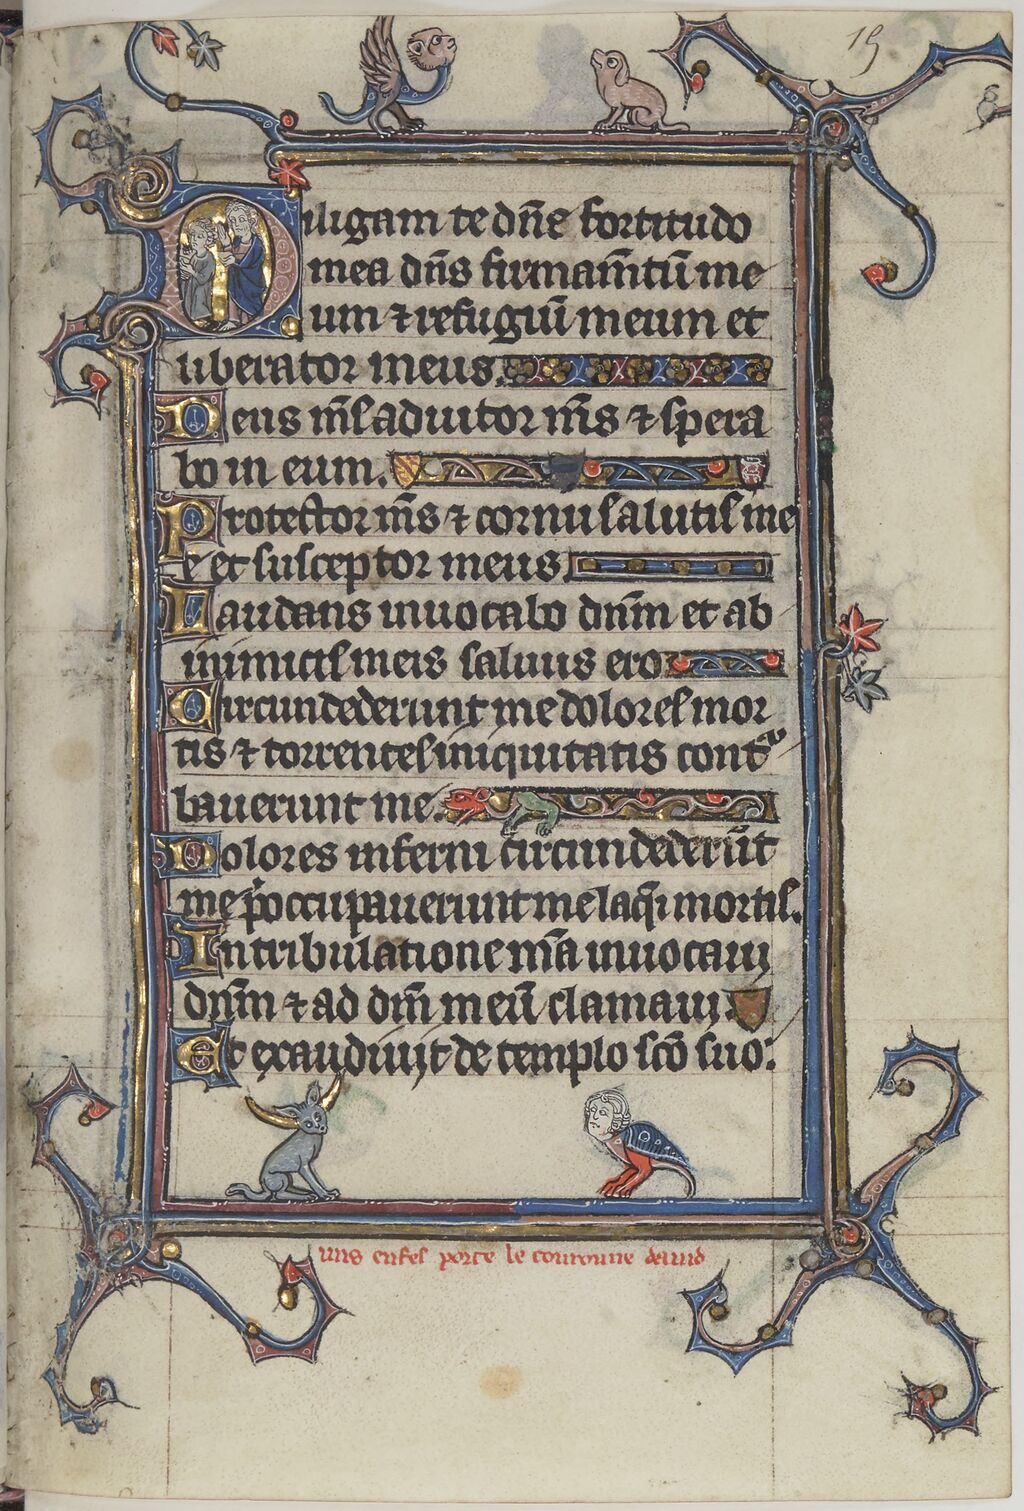 15
Diligam te dn̄e fortitudo
mea dn̄s firmam̄tū me
um ⁊ refugiū meum et
liberator meus.
Deus m̄s adiutor m̄s ⁊ spera
bo in eum.
Protector m̄s ⁊ cornu salutis me
e et susceptor meus
Laudans inuocabo dn̄m et ab
inimicis meis saluus ero
Circundederunt me dolores mor
tis ⁊ torrentes iniquitatis contᵘ
bauerunt me.
Dolores inferni circundederūt
me p̄occupauerunt me laq̄i mortis.
In tribulatione m̄a inuocaui
dn̄m ⁊ ad dm̄ meū clamaui
Et exaudiuit de templo sc̄o suo:
uns enfes porte le couronne dauid